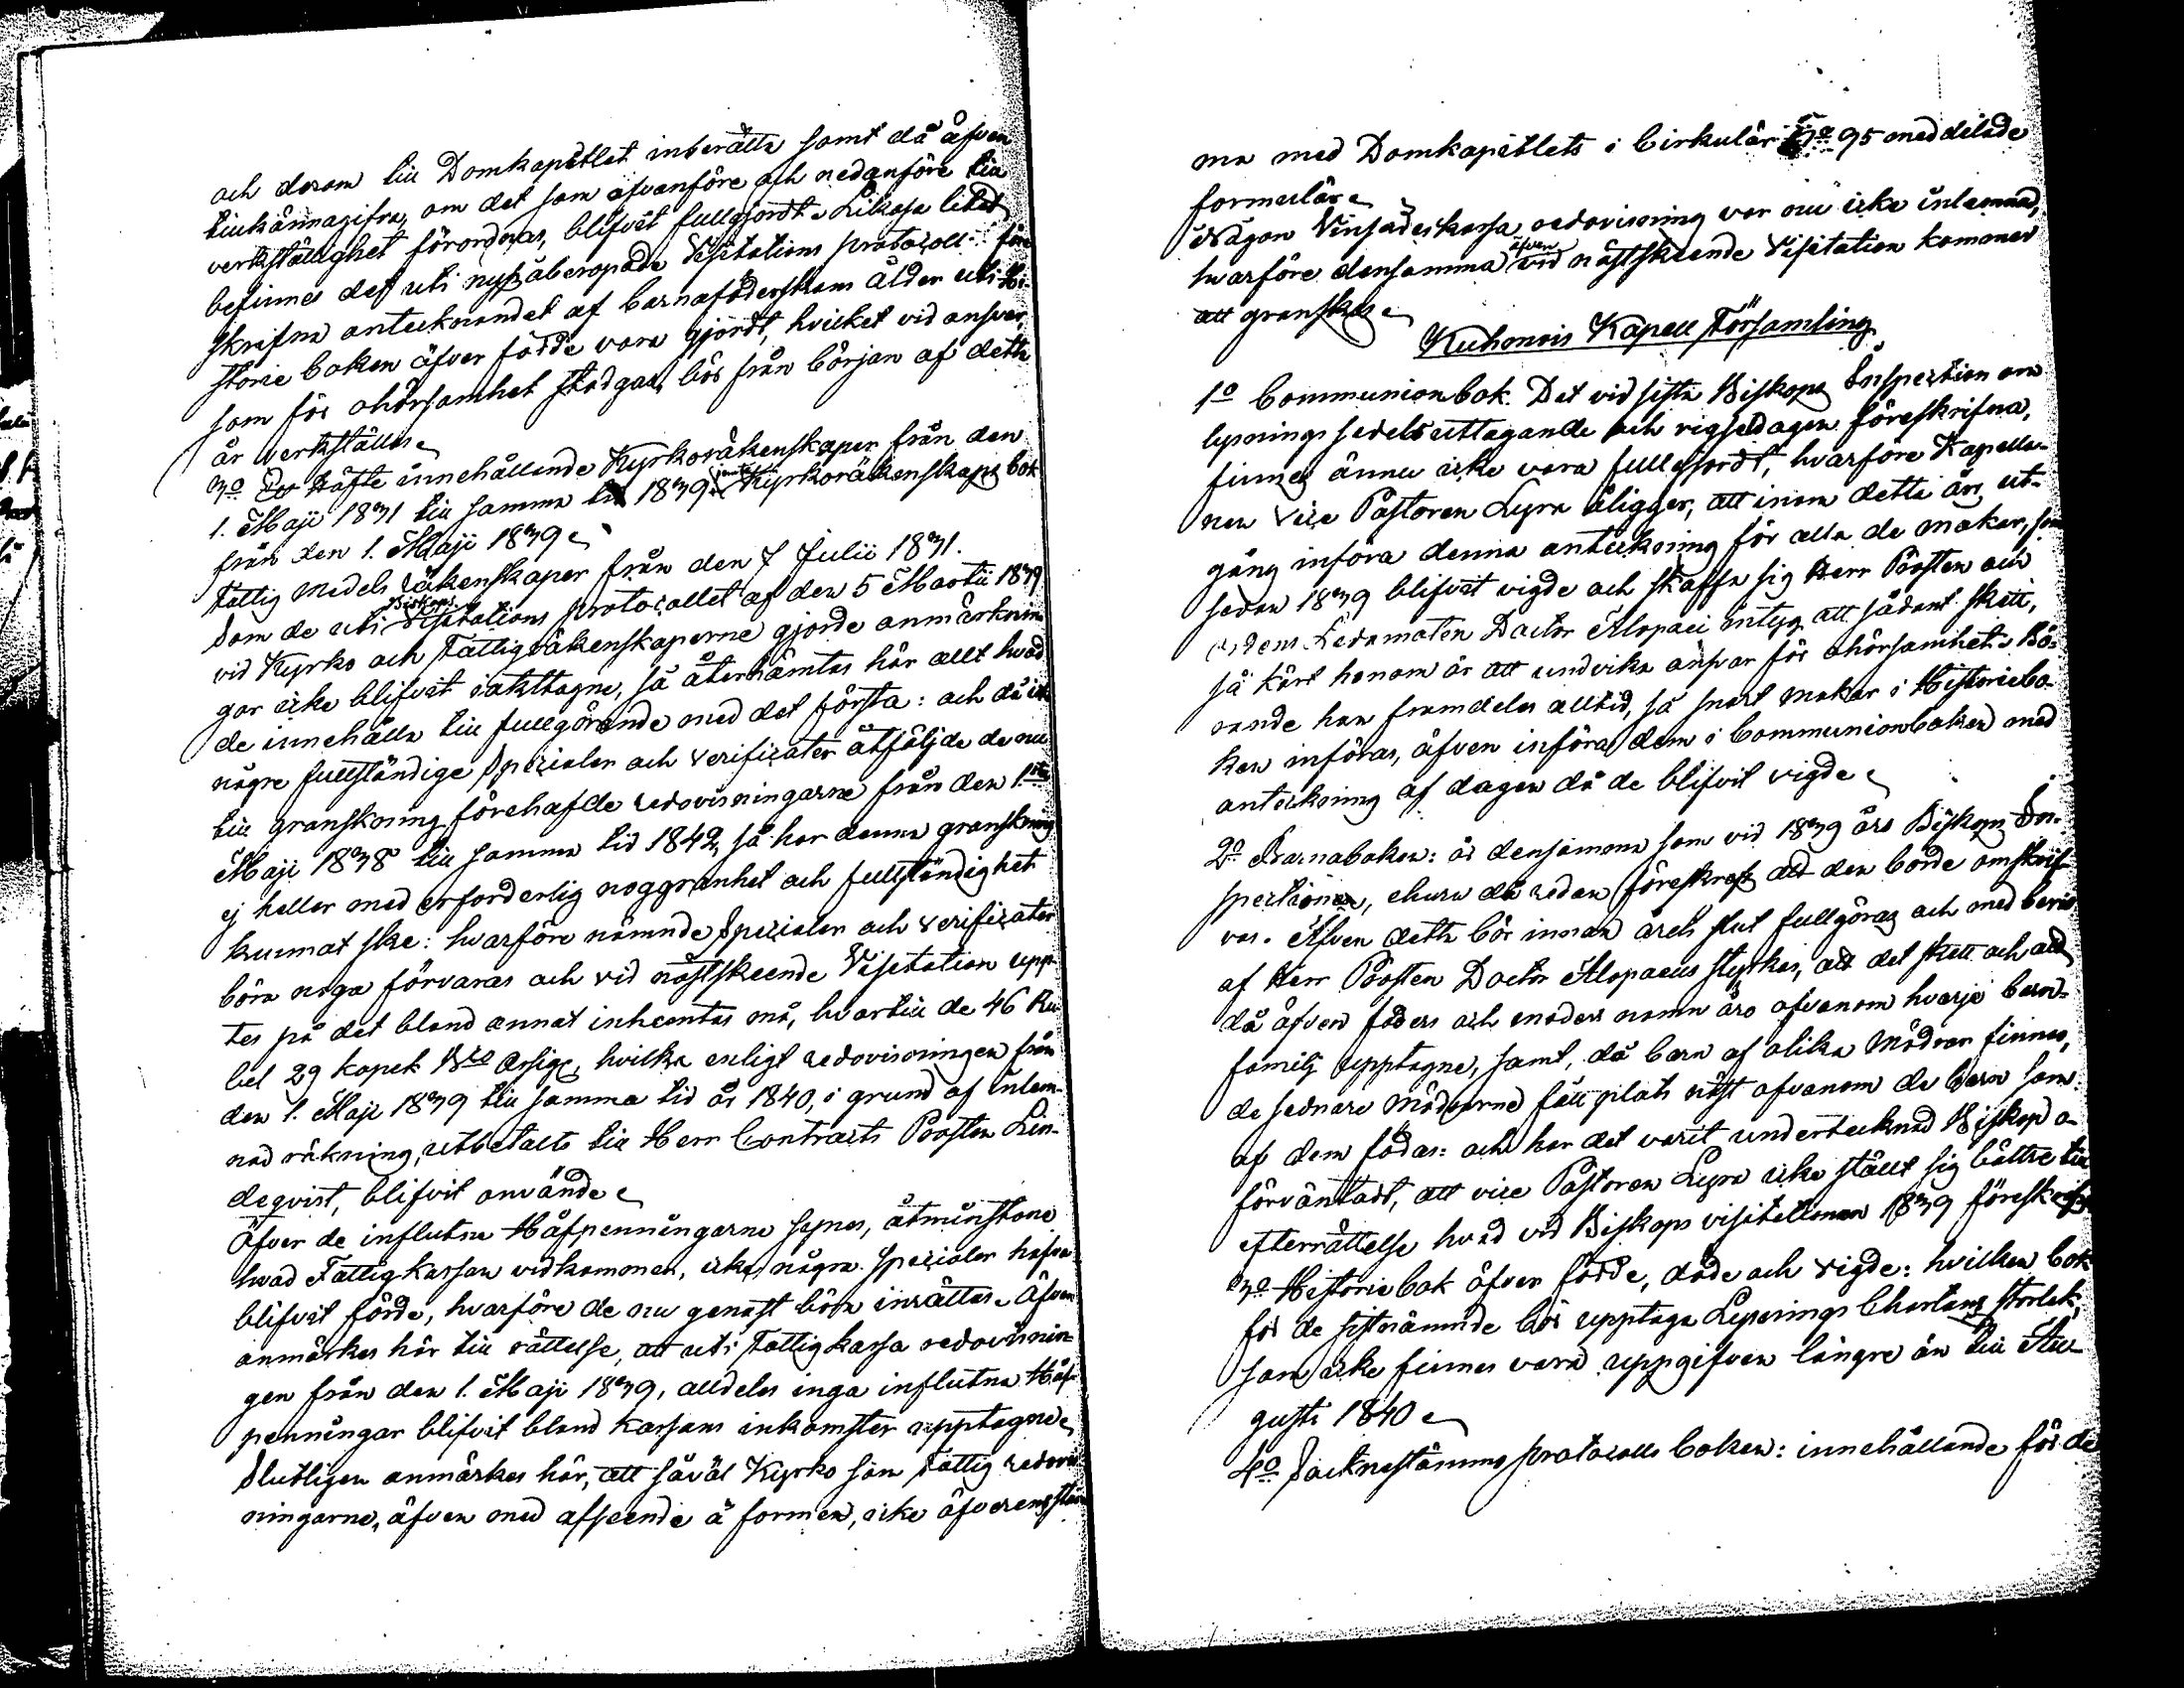 och derom till Domkapitlet inberätta samt då äfven
tillkännagifva, om det som ofvanföre och nedanföre till
verkställighet förordnas, blifvit fullgjordt. Likaså litet
befinnes det uti nyssåberopade Visitations protocoll före
skrifna antecknandet af barnaföderskans ålder uti Hi-
storie boken öfver födde vara gjordt, hvilket vid ansvar,
som för ohörsamhet stadgas, bör från början af detta
år verkställas.
3o Ett häfte innehållande Kyrkoräkenskaper från den
1. Maji 1831 till samma tid 1839 jemte Kyrkoräkenskaps bok
från den 1. Maji 1839.
Fattig medels räkenskaper från den 7 Julii 1831.
Som de uti Biskops Visitations protocollet af den 5 Martii 1839
vid Kyrko och Fattigräkenskaperne gjorde anmärknin
gar icke blifvit iakttagne, så återhämtas här allt hvad
de innehålla till fullgörande med det första: och då icke
någre fullständige Specialer och Verificater åtföljde de nu
till granskning förehafde redovisningarne från den 1sta
Maji 1838 till samma tid 1842, så har denna granskning
ej heller med erforderlig noggranhet och fullständighet
kunnat ske: hvarföre nämnde Specialer och Verificater
böra noga förvaras och vid nästskeende Visitation upp-
tes på det bland annat inhemtas må, hvartill de 46 Ru
bel 29 kopek Bco Assign, hvilka enligt redovisningen från
den 1. Maji 1839 till samma tid år 1840, i grund af inlem-
nad räkning, utbetalts till Herr Contracts Prosten Lin-
deqvist, blifvit använde.
Öfver de influtne Håfpenningarne synes, åtminstone
hvad Fattigkassan vidkommer, icke några specialer hafva
blifvit förde, hvarföre de nu genast böra inrättas. Äfven
anmärkes här till rättelse, att uti Fattigkassa redovisnin-
gen från den 1. Maji 1839, alldeles inga influtna Håf-
penningar blifvit bland Kassans inkomster upptagne.
Slutligen anmärkes här, att såväl Kyrko som Fattig redovis
ningarne, äfven med afseende å formen, icke öfverensstäm
ma med Domkapitlets i Cirkulär No 95 meddelade
formulär.
Någon Vinsädeskassa redovisning var nu icke inlemnad,
hvarföre densamma äfven vid nästskeende Visitation kommer
att granskas.
Kuhmois Kapell Församling
1o Communionbok. Det vid sista Biskops Inspection om
lysnings sedels uttagande och vigseldagen föreskrifna,
finnes ännu icke vara fullgjordt, hvarföre Kapella-
nen Vice Pastoren Lyra åligger, att inom detta års ut-
gång införa denna anteckning för alla de makar, som
sedan 1839 blifvit vigde och skaffa sig Herr Prosten och
Ledamoten Doctor Alopaei intyg att sådant skett,
så kärt honom är att undvika ansvar för ohörsamhet. Bö-
rande han framdeles alltid, så snart makar i Historiebo-
ken införas, äfven införa dem i Communionboken med
anteckning af dagen då de blifvit vigde.
2o Barnaboken: är densamma som vid 1839 års Biskops In-
spectionen, ehuru då redan föreskrefs att den borde omskrif-
vas. Äfven detta bör innan årets slut fullgöras och med bevis
af Herr Prosten Doctor Alopaeus styrkas, att det skett och att
då äfven faders och moders namn äro ofvanom hvarje barn-
familj upptagne, samt, då barn af olika mödrar finnas,
de sednare mödrarne fått plats näst ofvanom de barn som
af dem födas: och har det varit undertecknad Biskop o-
förväntadt, att vice Pastoren Lyra icke ställt sig bättre till
efterrättelse hvad vid Biskops visitationen 1839 föreskrefs
3o Historiebok öfver födde, döde och vigde: hvilken bok
för de sistnämnde bör upptaga Lysnings Chartans storlek,
som icke finnes vara uppgifven längre än till Au-
gusti 1840.
4o Socknestämmoprotocolls boken: innehållande för de